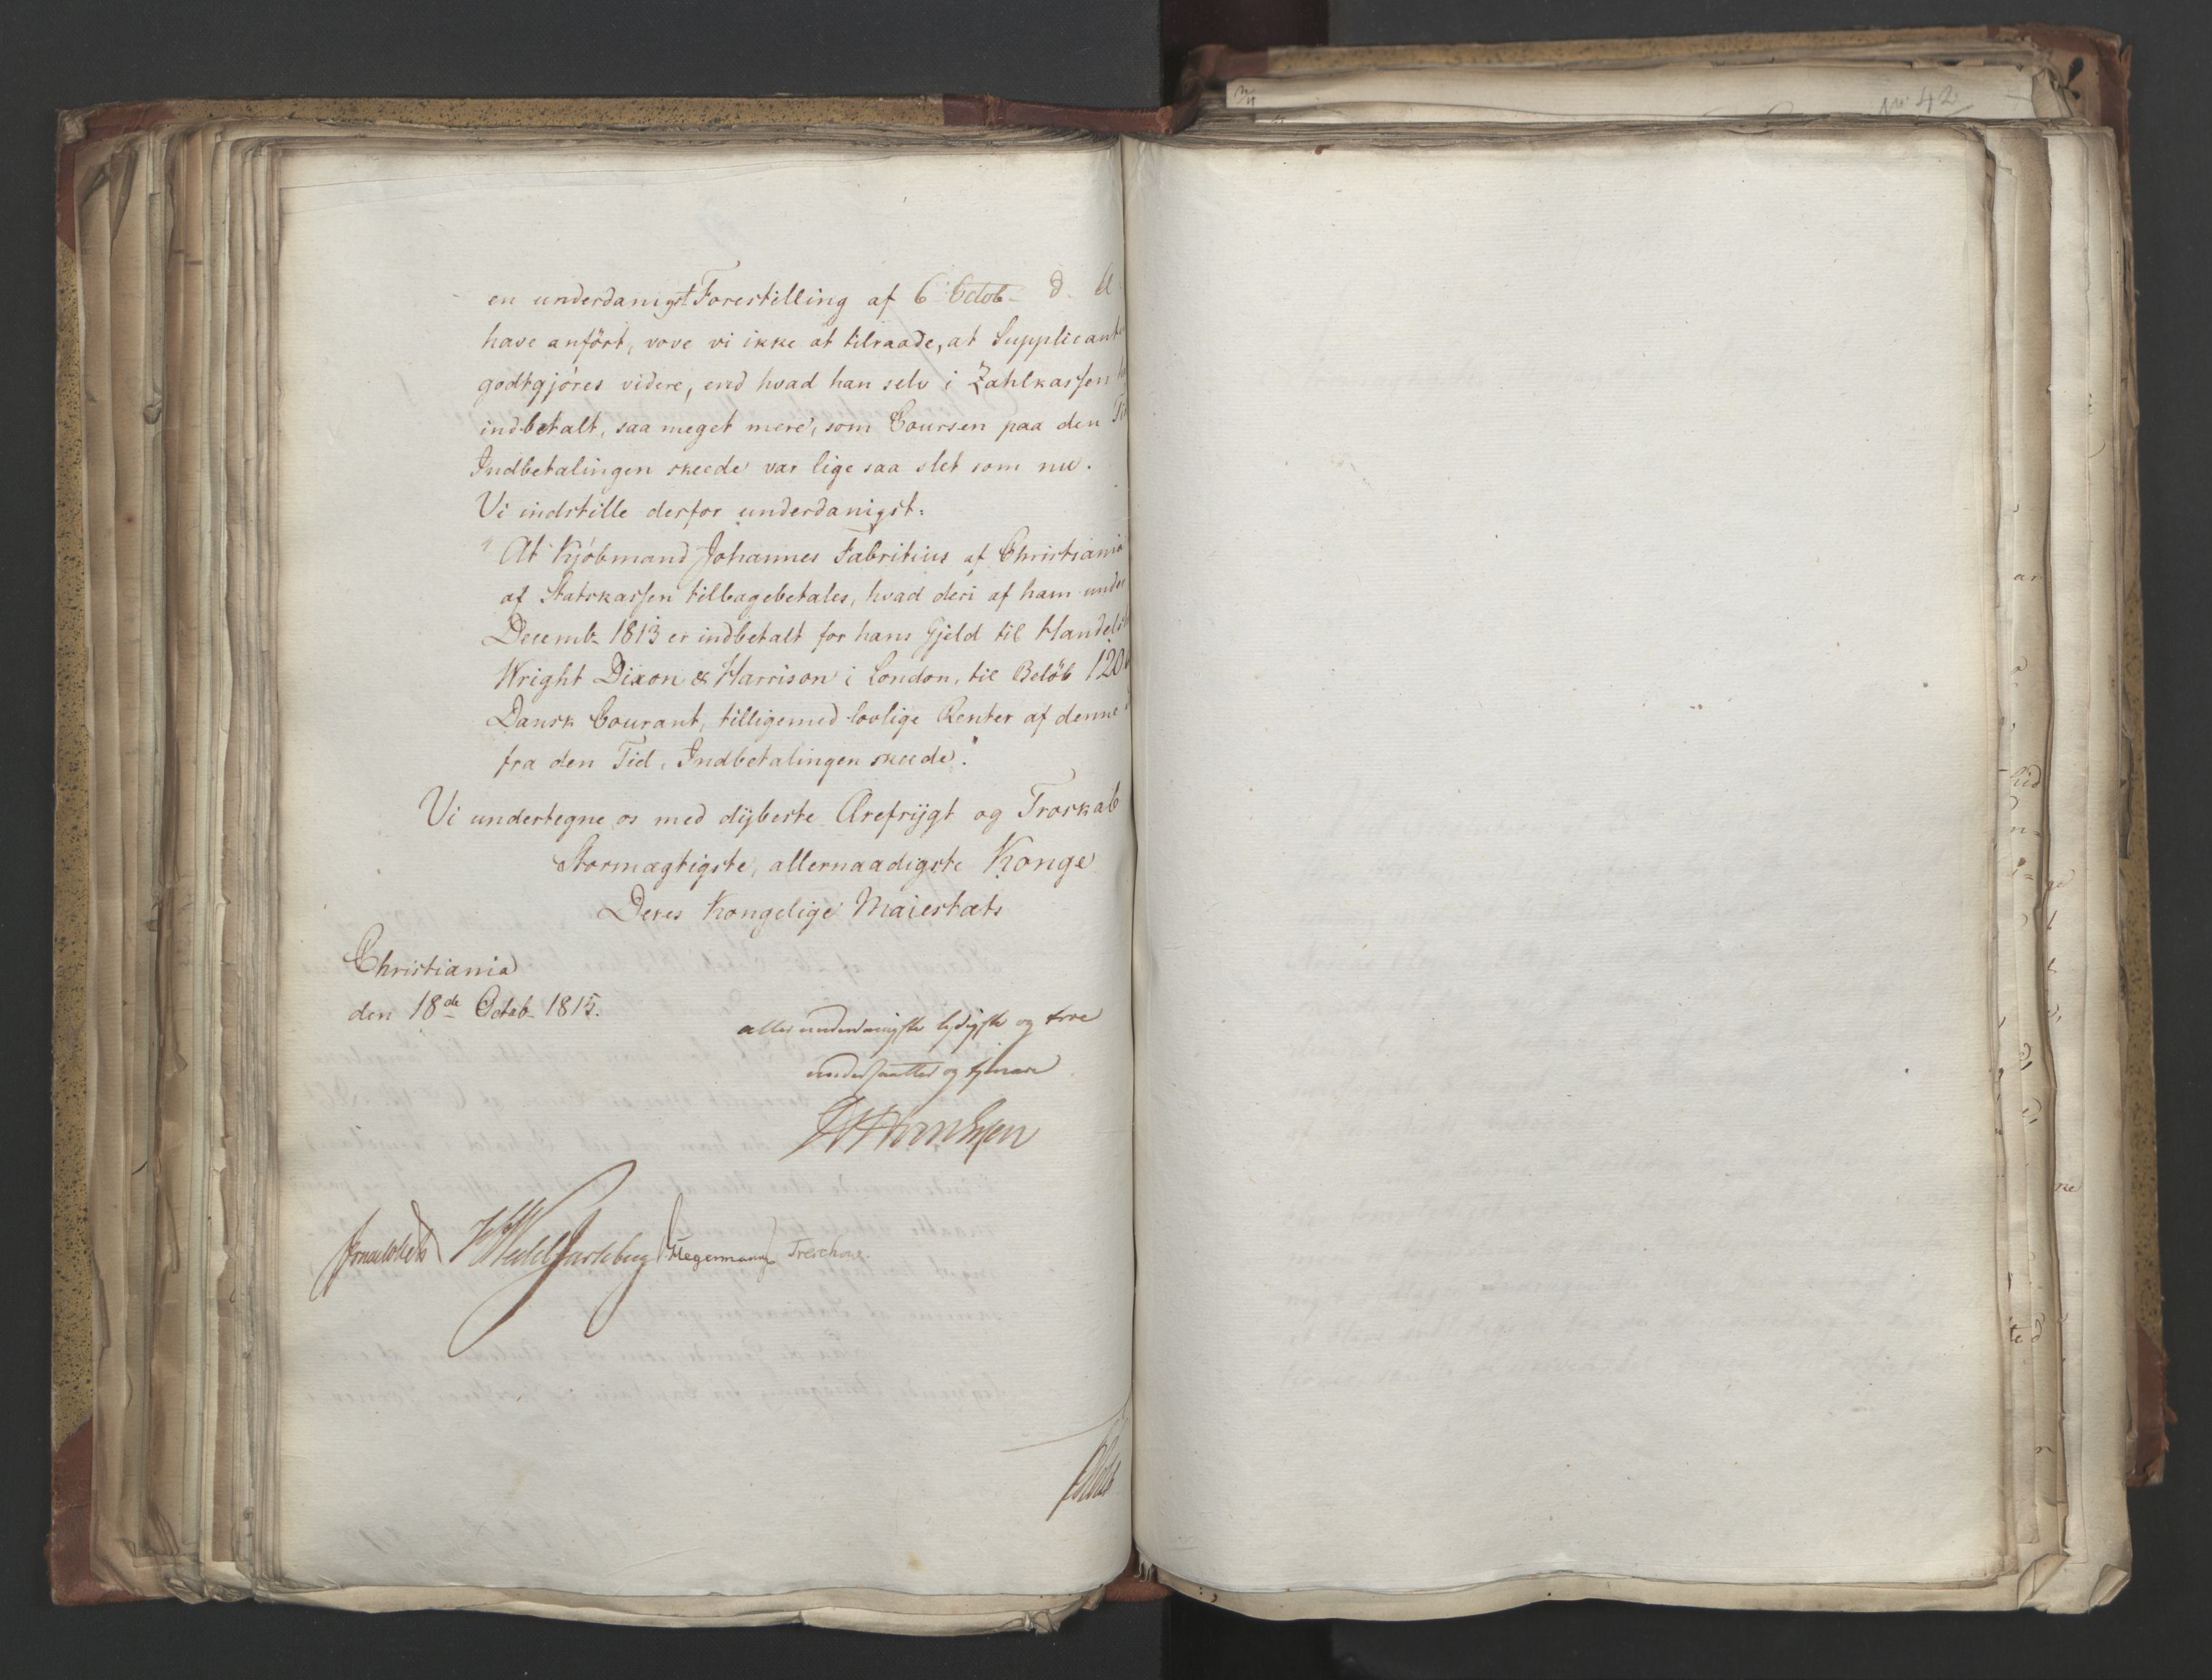 No 42
en underdanigst Forestilling af 6 Octob. d. A.
have anført, vove vi ikke at tilraade, at Supplicant
godtgjøres videre, end hvad han selv i Zahlkassen
indbetalt, saa meget mere, som Coursen paa den
Indbetalingen skeede var lige saa slet som nu.
Vi indstille derfor underdanigst:
"At Kjøbmand Johannes Fabritius af Christiania
af Statskassen tilbagebetales, hvad deri af ham under
Decemb. 1813 er indbetalt for hans Gjeld til Handels
Wright Dixon & Harrison i London, til Beløb 120
Dansk Courant, tilligemed lovlige Renter af denne
fra den Tid, Indbetalingen skeede."
Vi undertegne os med dÿbeste Ærefrÿgt og Troskab
Stormægtigste, allernaadigste Konge
Deres Kongelige Maiestæts
Christiania
den 18de Octob. 1815.
allerunderdanigste lydigste og troe
undersaatter og tjenere
Sommerhjelm Wedel Jarlsberg Hegermann Treschow.